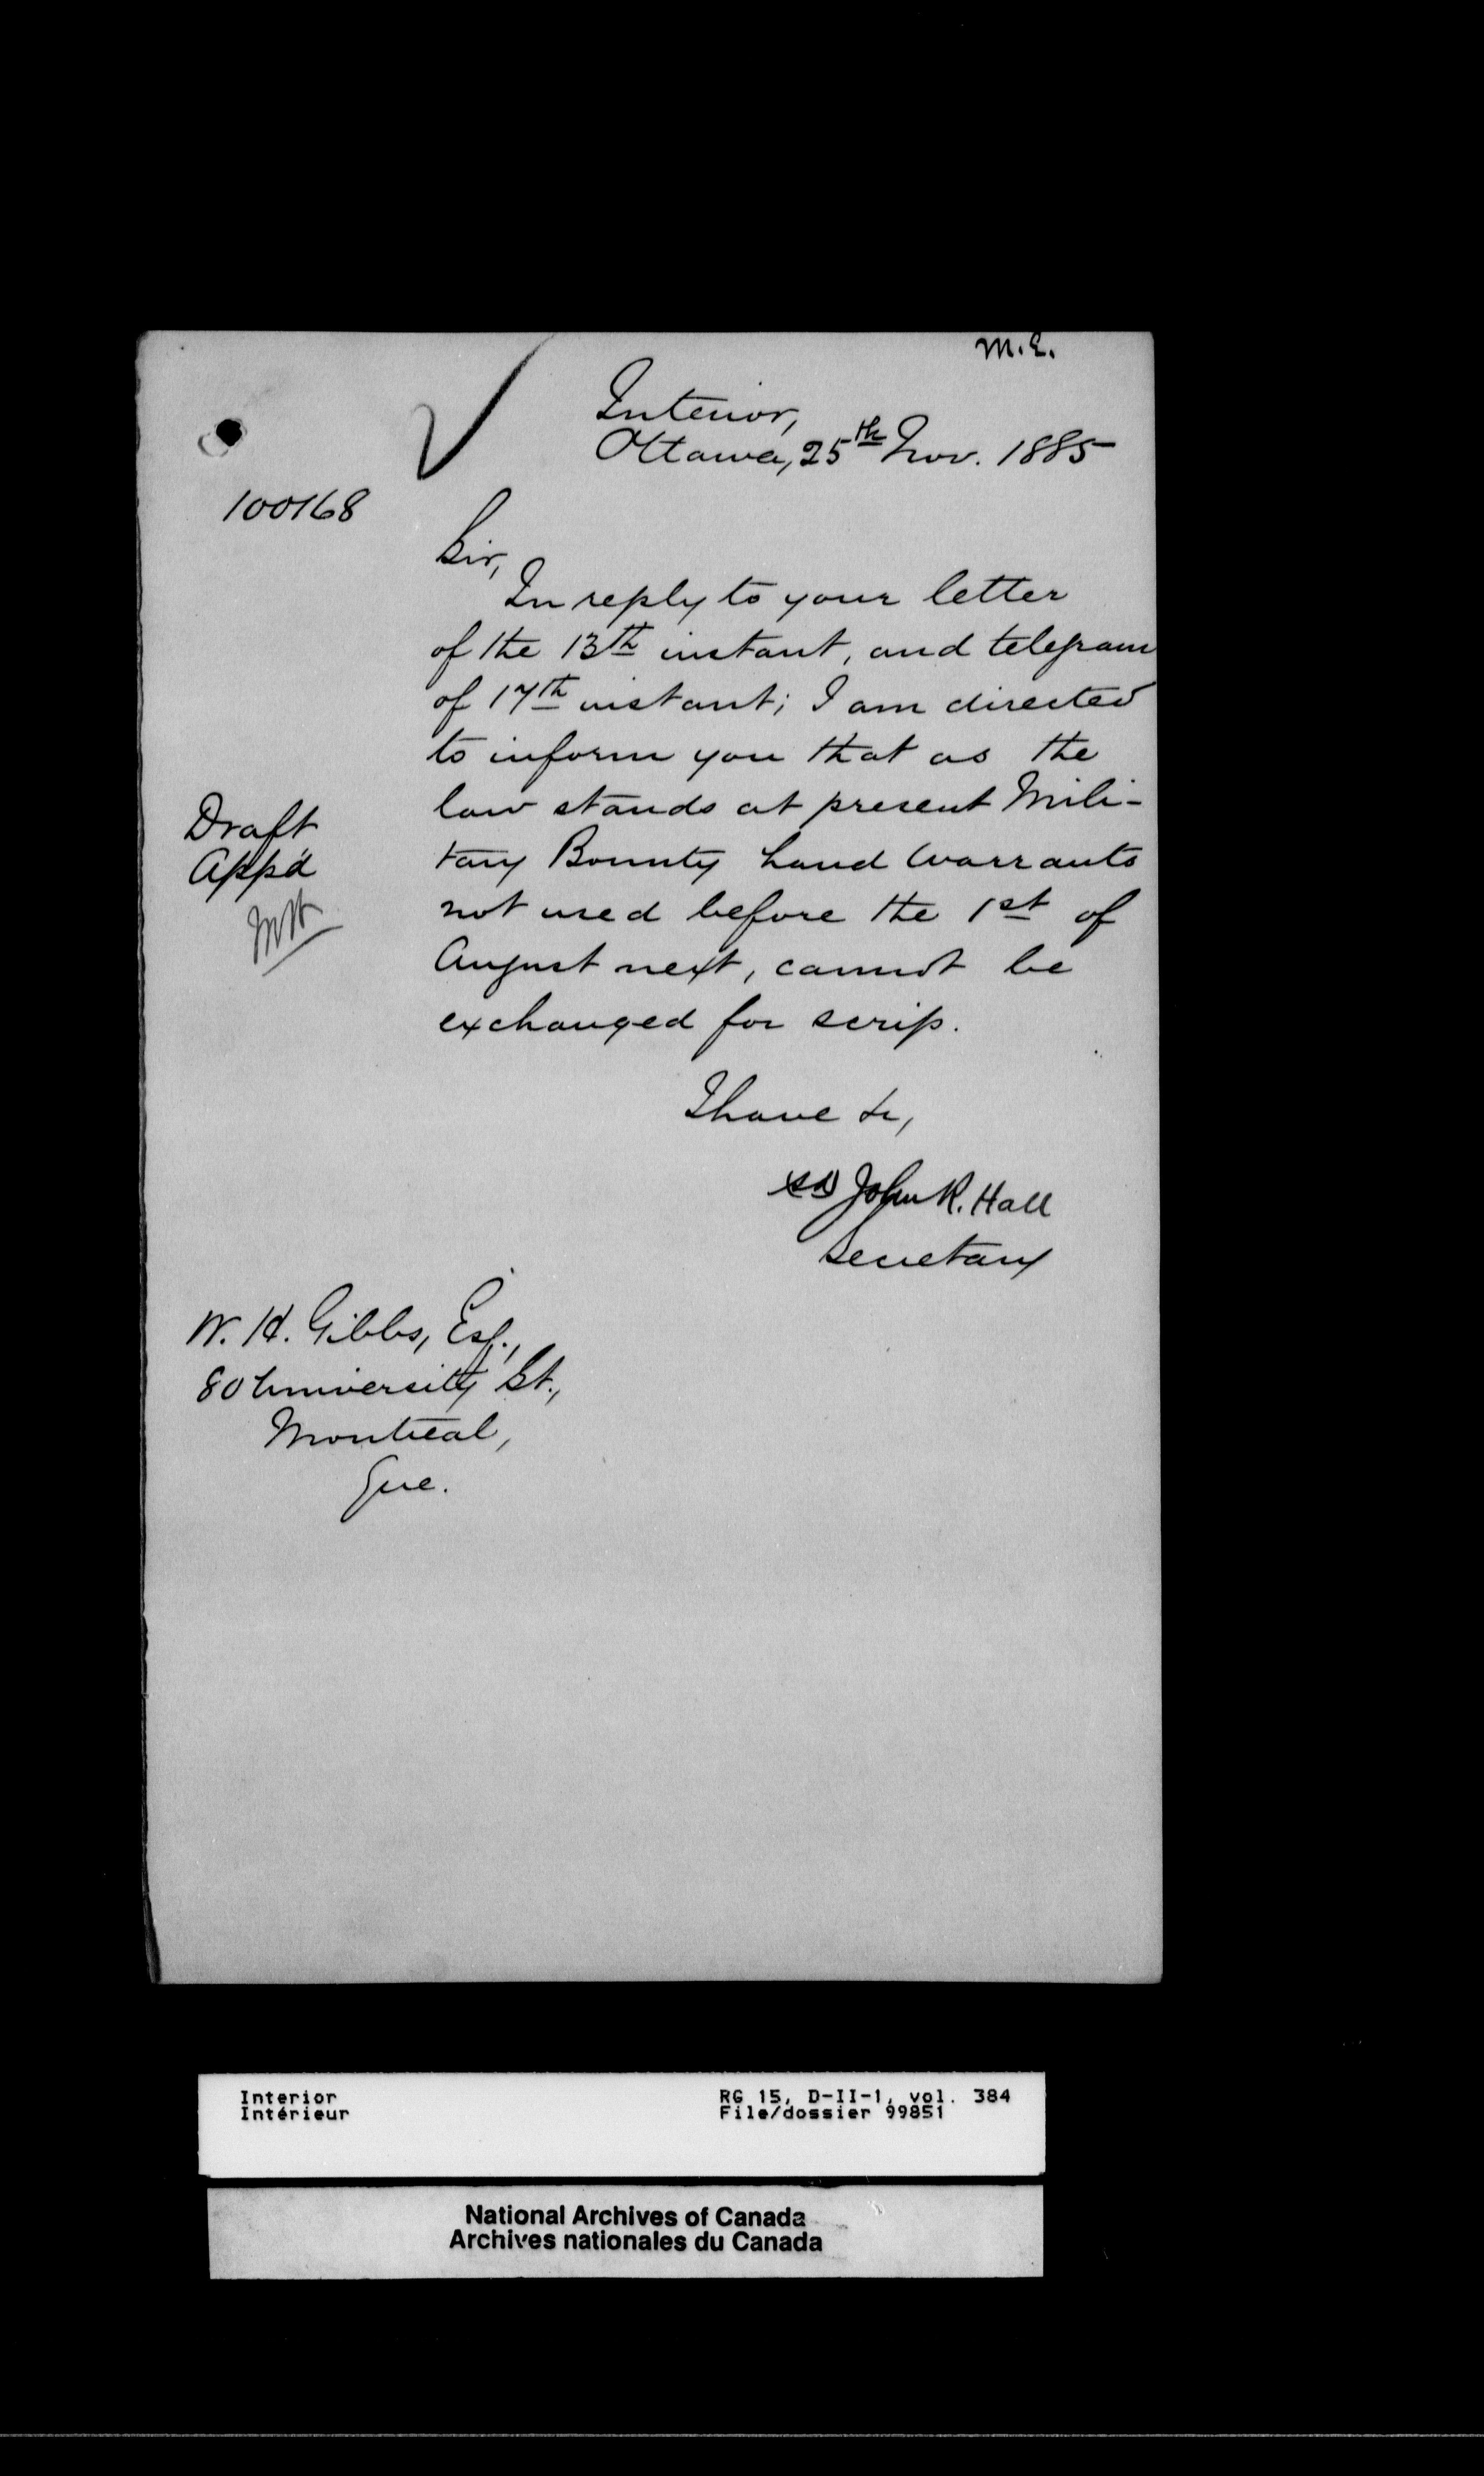 M.E.
Interior,
Ottawa, 25th Nov. 1885
100168
Sir,
In reply to your letter
of the 13th instant, and telegram
of 17th instant; I am directed
to inform you that as the
law stands at present Mili-
tary Bounty Land Warrants
not used before the 1st of
August next, cannot be
exchanged for scrip.
Draft
App'd
I have &c,
sd John R. Hall
Secretary
W. H. Gibbs, Esq.,
80 University St.,
Montreal,
Que.
Interior
Intérieur
RG 15, D-II-1, vol. 384
File/dossier 99851
National Archives of Canada
Archives nationales du Canada